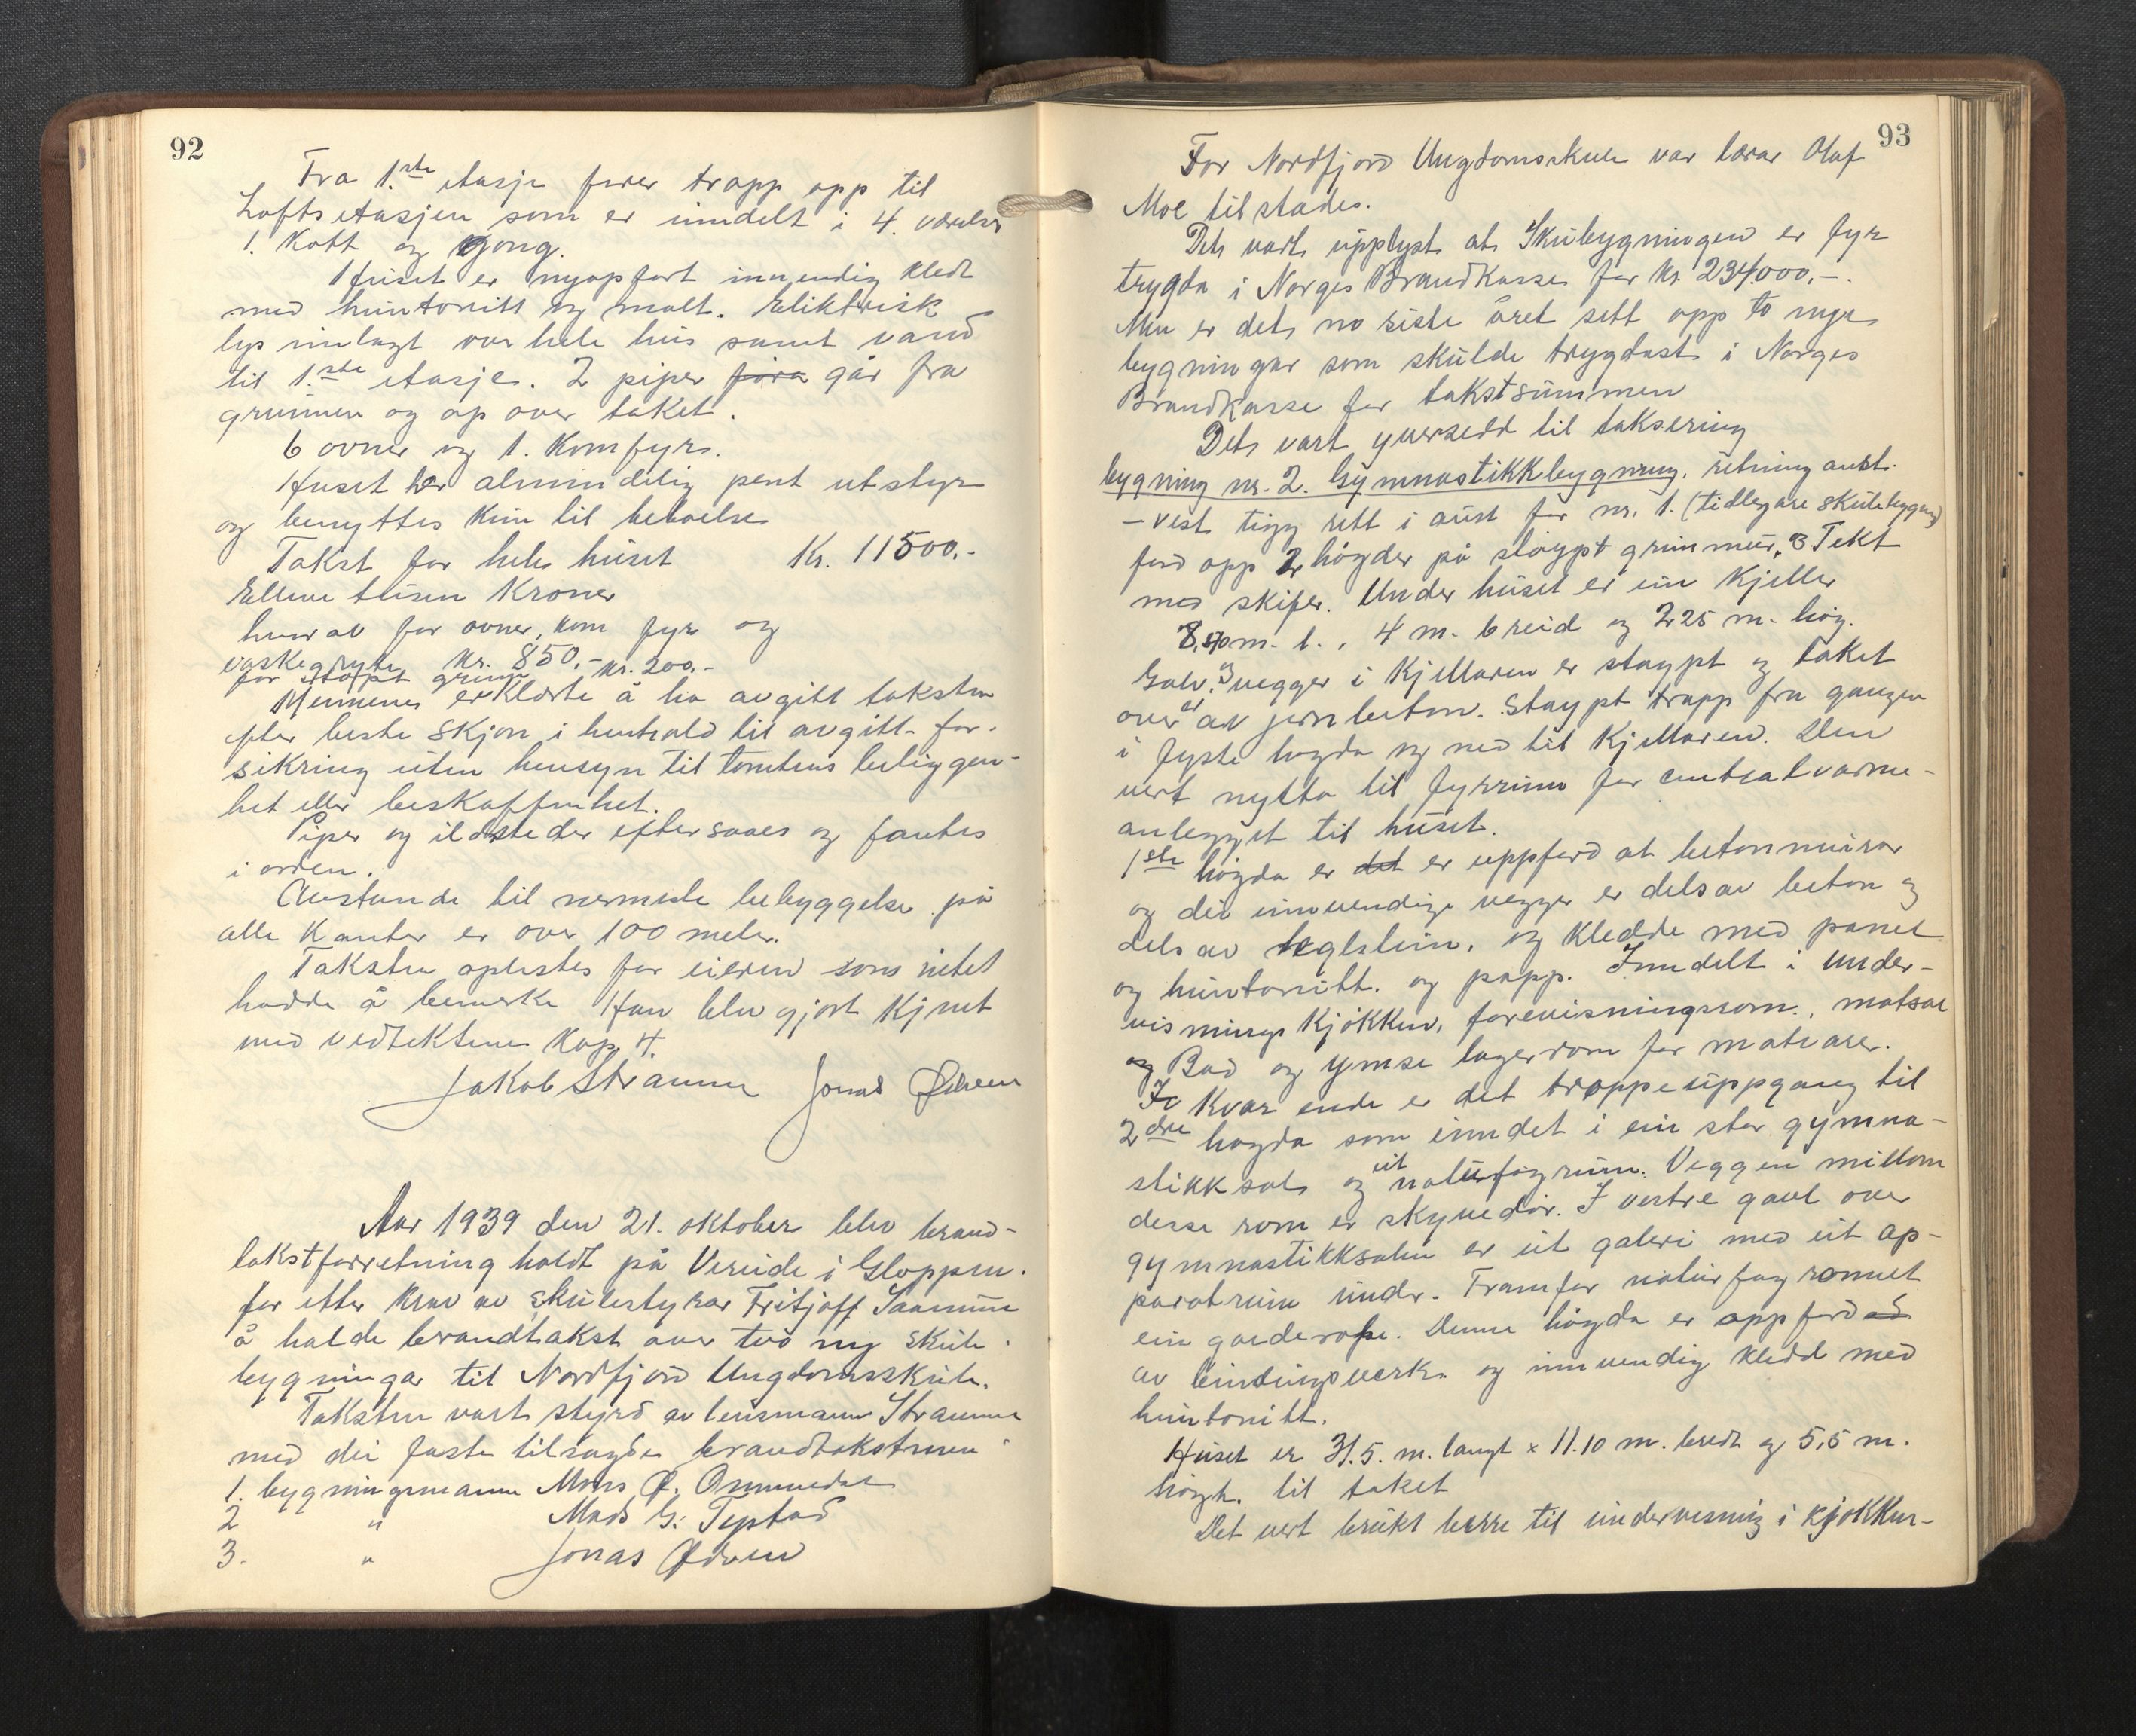 92
Fra 1.ste etasje fører trapp opp til
Loftsetasjen som er inndelt i 4. værelser
1. Kott og gong.
Huset er nyopført innvendig kledt
med huntonitt og malt. Eliktrisk
lys innlagt over hele hus samt vand
til 1.ste etasje. 2 piper går fra
grunnen og op over taket.
6 ovner og 1. Komfyr.
Huset er almindelig pent utstyr
og benyttes kun til beboelse
Takst for hele huset Kr. 11500.-
Elleve tusen Kroner
hvorav for ovner, komfyr og
vaskegryte Kr. 850,-
for støpt grunn Kr. 200.-
Mennene erklærte å ha avgitt taksten
efter beste skjøn i henhold til avgitt for-
sikring uten hensyn til tomtens beliggen-
het eller beskaffenhet.
Piper og ildsteder eftersaaes og fantes
i orden.
Avstande til nermeste bebyggelse på
alle Kanter er over 100 meter.
Taksten oplestes for eieren som intet
hadde å bemerke Han blev gjort Kjent
med vedtektene Kap. 4.
Jakob Straume Jonas Ødven
Aar 1939 den 21. oktober blev brand-
takstforretning holdt på Vereide i Gloppen.
for etter krav av skulestyrar Fritjoff Saanum
å halde brandtakst over två ny skule-
bygningar til Nordfjord Ungdomsskule.
Taksten vart styrd av lensmann Straume
med dei faste tilsagde brandtakstmenn
1. bygningsmann Mons Ø. Ommedal
2 " Mads G. Tystad
3. " Jonas Ødven
93
For Nordfjord Ungdomsskule var lærar Olaf
Moe tilstades.
Dets vart upplyst at Skulbygningen er fyr
trygda i Norges Brandkasse for kr. 234.000,-.
Men er det no siste året sett opp to nye
bygningar som skulde trygdast i Norges
Brandkasse for takstsummen
Det vart yversedd til taksering
bygning nr. 2. Gymnastikkbygning. retning aust-
-vest tigg rett i aust for nr. 1. (tidlegare skulebygning)
ford opp 2 høgder på støypt grunnmur, Tekt
med skifer. Under huset er ein Kjeller
8,50 m. l., 4 m. breid og 2,25 m. høg.
Golv og vegger i Kjellaren er støypt og taket
over er av jernbeton. Støypt trapp fra gangen
i fyste høgda og ned til Kjellaren. Den
vert nytta til fyrrum for centralvarme-
anlegget til huset.
1ste høgda er det er uppford at betonmurar
og dei innvendige vegger er dels av beton og
dels av teglstein, og kledde med panel
og huntonitt. og papp. Inndelt i under-
visnings Kjøkken, forevisningsrom., matsal
og Bad og ymse lagerrom for matvarer.
I Kvar ende er det trappeuppgang til
2dre høgda som inndet i ein stor gymna-
stikksals og eit naturfagrum. Veggen millom
desse rom er skyvedør. I vestre gavl over
gymnastikksalen er eit galeri med eit ap-
paratrum under. Framfor naturfagromet
ein garderobe. Denne høgda er oppford
av bindingsverk og innvendig kledd med
huntonitt.
Huset er 31.5. m. langt x 11.10 m. bredt og 5,5 m.
høgt. til taket
Det vert brukt berre til undervisning i kjøkken-